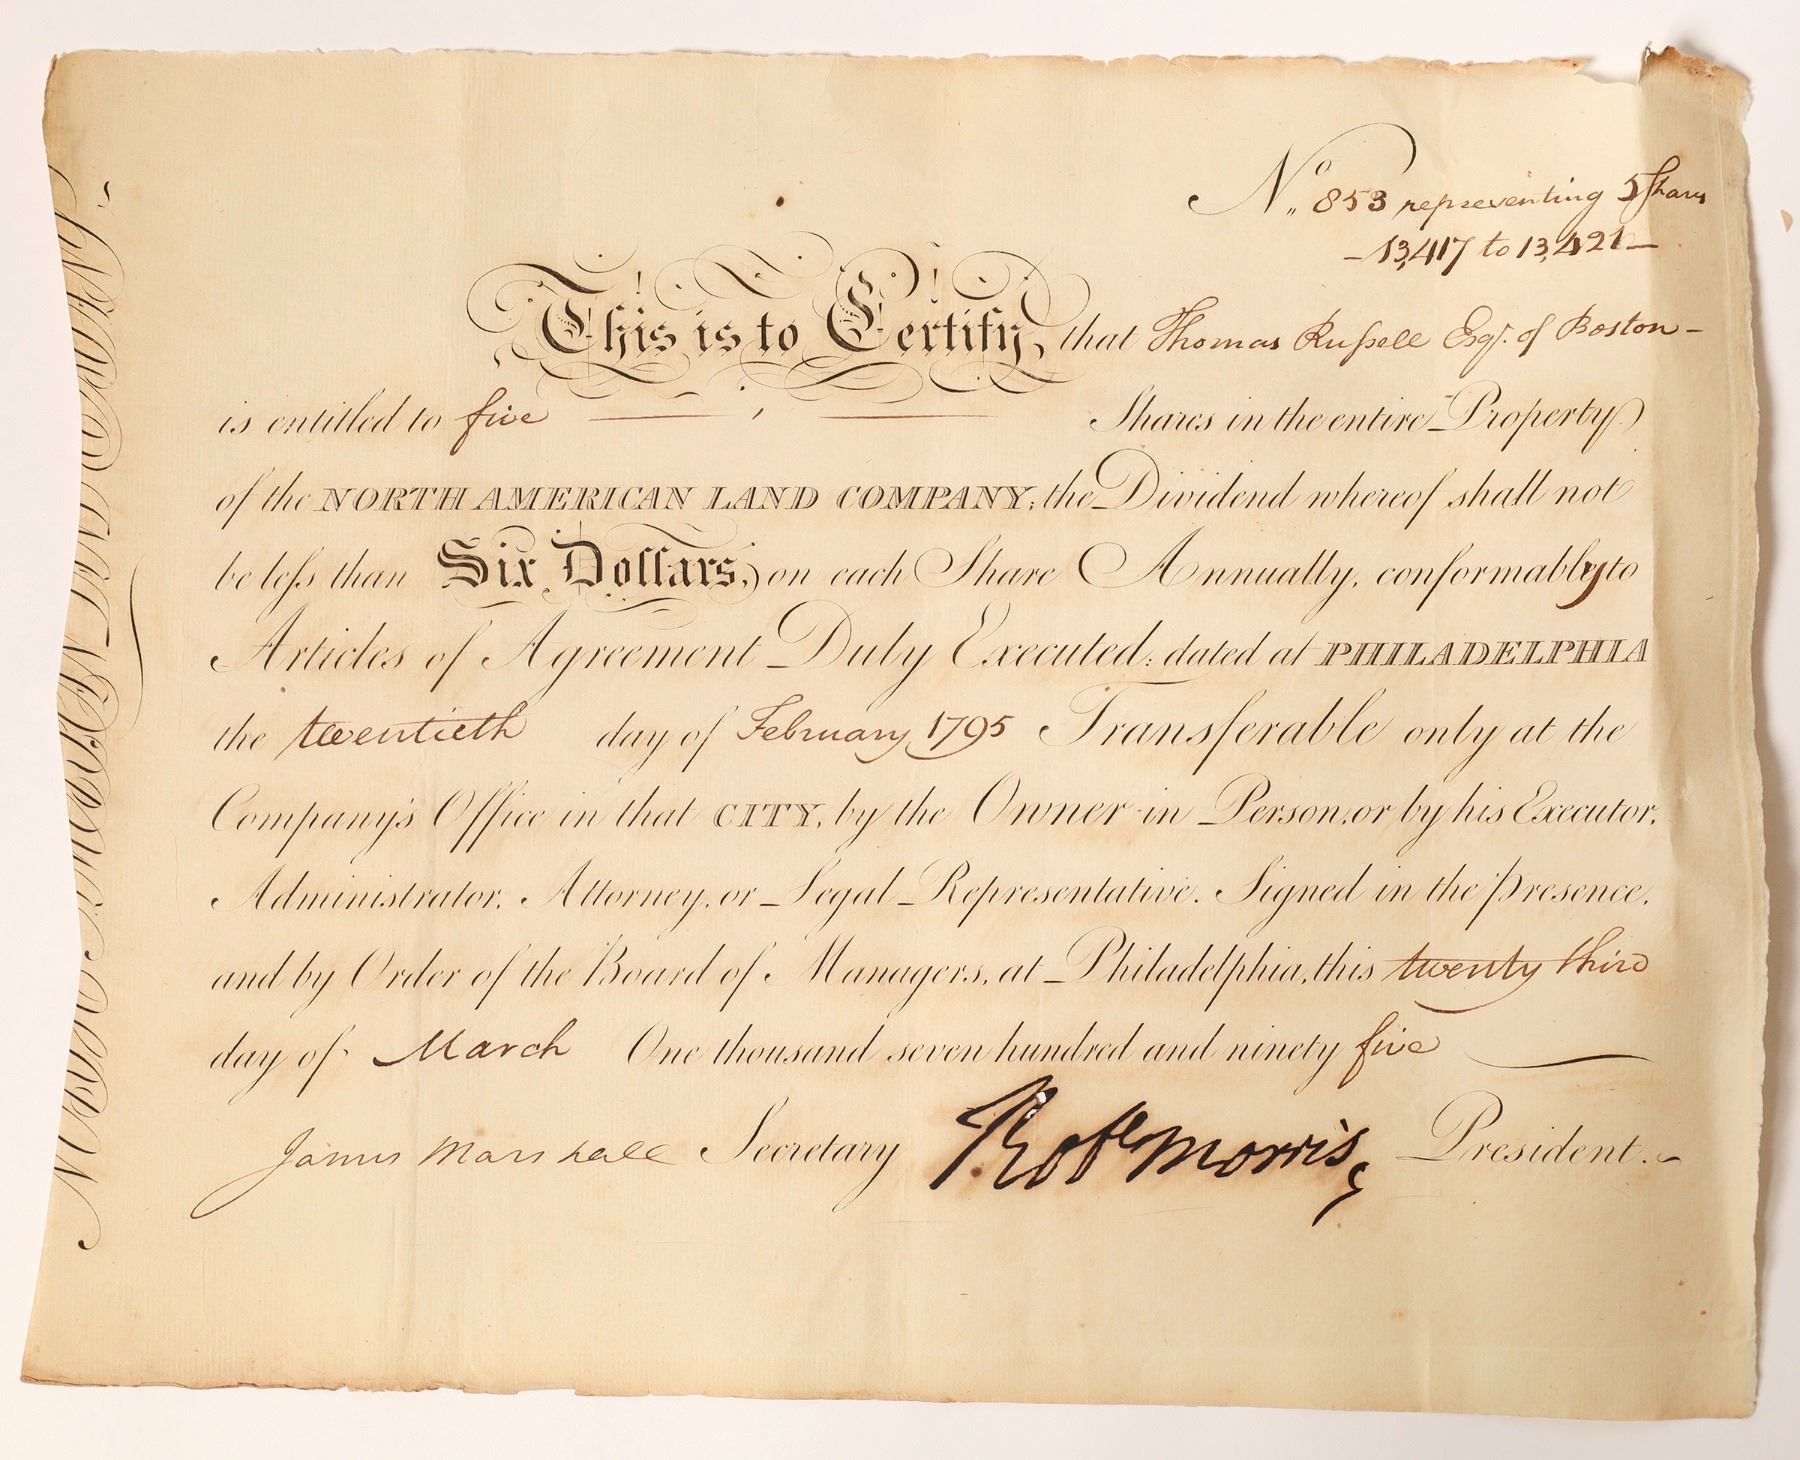 No. 853 representing 5 Shares
13,417 to 13,421
This is to Certify, that Thomas Russell Esqr. of Boston
is entitled to five Shares in the entire Property
of the NORTH AMERICAN LAND COMPANY; the Dividend whereof shall not
be less than Six Dollars, on each Share Annually, conformably to
Articles of Agreement Duly Executed: dated at PHILADELPHIA
the twentieth day of February 1795 Transferable only at the
Company's Office in that CITY, by the Owner in Person, or by his Executor,
Administrator, Attorney, or Legal Representative. Signed in the presence,
and by Order of the Board of Managers, at Philadelphia, this twenty third
day of March One thousand seven hundred and ninety five
James Marshall Secretary Robt Morris, President.